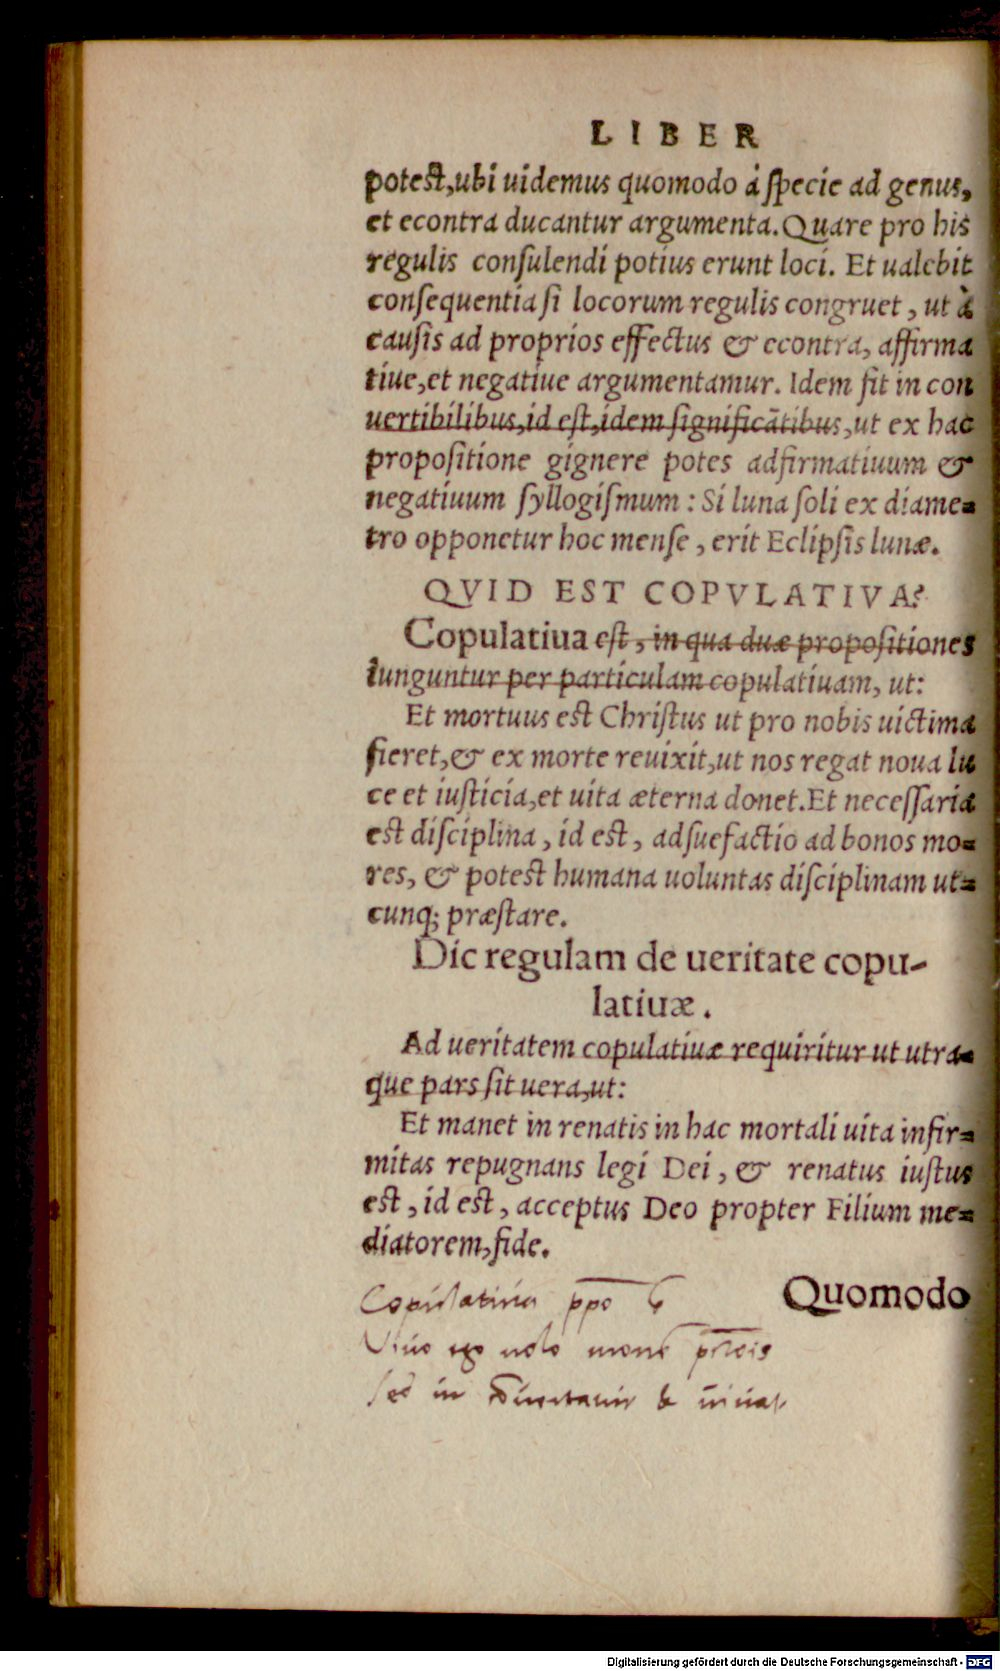 LIBER
potest, ubi uidemus quomodo à specie ad genus,
et econtra ducantur argumenta. Quare pro his
regulis consulendi potius erunt loci. Et ualebit
consequentia si locorum regulis congruet, ut à
causis ad proprios effectus & econtra, affirma
tiue, et negatiue argumentamur. Idem fit in con
uertibilibus, id est, idem significãtibus, ut ex hac
propositione gignere potes adfirmatiuum &
negatiuum syllogismum: Si luna soli ex diame=
tro opponetur hoc mense, erit Eclipsis lunæ.
QVID EST COPVLATIVA?
Copulatiua est, in qua duæ propositiones
iunguntur per particulam copulatiuam, ut:
Et mortuus est Christus ut pro nobis uictima
fieret, & ex morte reuixit, ut nos regat noua lu
ce et iusticia, et uita æterna donet. Et necessaria
est disciplina, id est, adsuefactio ad bonos mo=
res, & potest humana uoluntas disciplinam ut=
cunq; præstare.
Dic regulam de ueritate copu-
latiuæ.
Ad ueritatem copulatiuæ requiritur ut utra=
que pars sit uera, ut:
Et manet in renatis in hac mortali uita infir=
mitas repugnans legi Dei, & renatus iustus
est, id est, acceptus Deo propter Filium me=
diatorem, fide.
Quomodo
Copulatiua
Viuo ego nolo
sed &
Digitalisierung gefördert durch die Deutsche Forschungsgemeinschaft - DFG